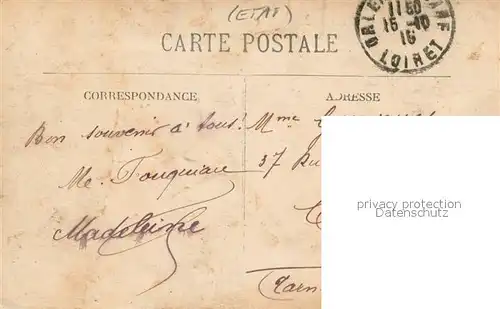 (ETAT)
CARTE POSTALE
11 50
15-10
16
LOIRET
CORRESPONDANCE
ADRESSE
Bon souvenir à tous!
Mme
Me. Fouquiau
37 Ru
Madeleine
Tarn
privacy protection
Datenschutz